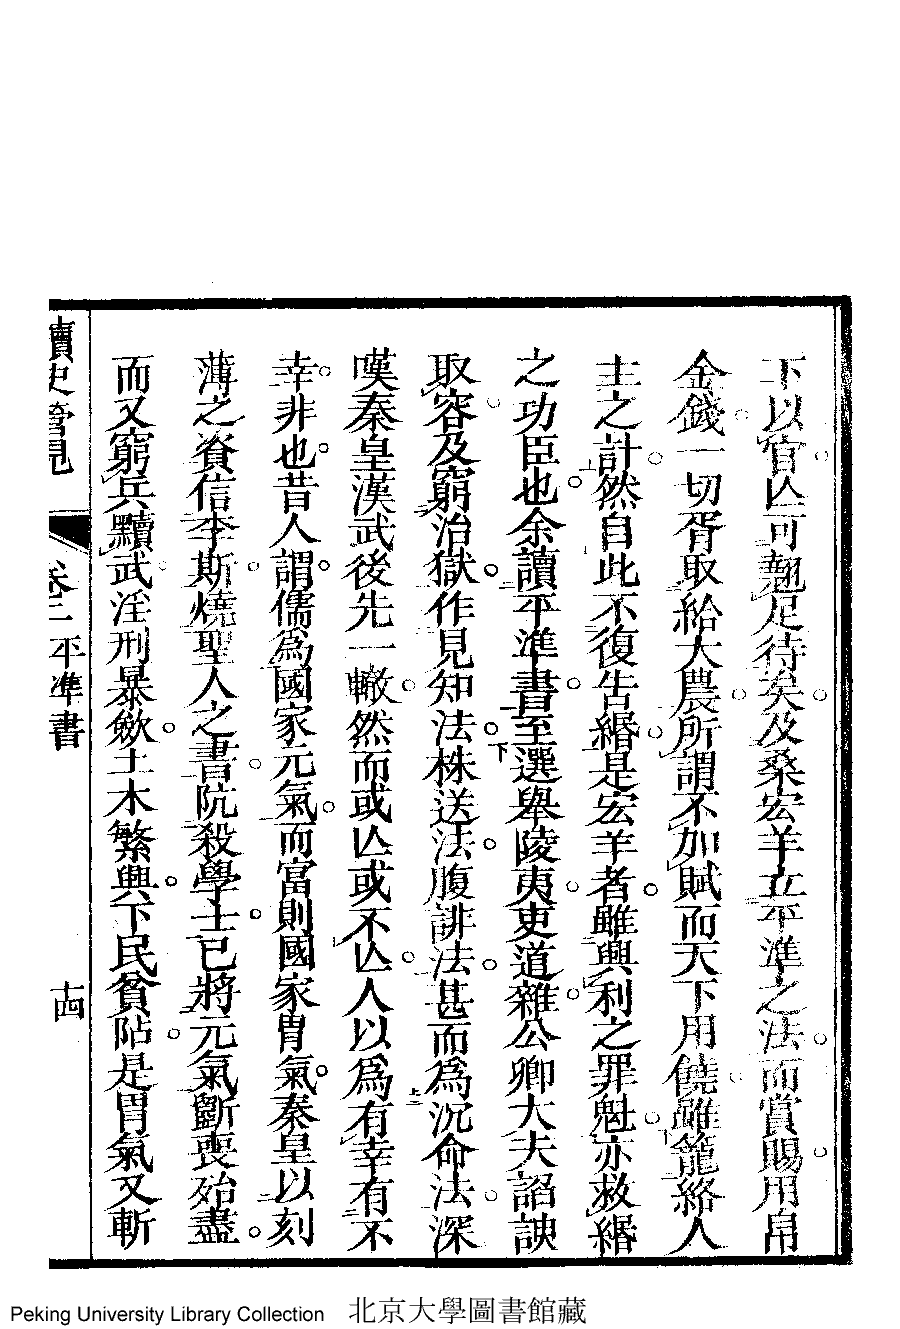 下以官亾可翹足待矣及桑宏羊立平準之法而賞賜用帛
金錢一切胥取給大農所謂不加賦而天下用饒雖籠絡人
主之計然自此不復吿緡是宏羊者雖興利之罪魁亦救緡
之功臣也余讀平準書至選舉陵夷吏道雜公卿大夫諂諛
取容及窮治獄作見知法株送法腹誹法甚而爲沉命法深
嘆秦皇漢武後先一轍然而或亾或不亾人以爲有幸有不
幸非也昔人謂儒爲國家元氣而富則國家胃氣秦皇以刻
薄之資信李斯燒聖人之書阬殺學士已將元氣斷喪殆盡
而又窮兵黷武淫刑暴斂土木繁興下民貧阽是胃氣又斬
讀史管見
卷二 平準書
十四
Peking University Library Collection 北京大學圖書館藏